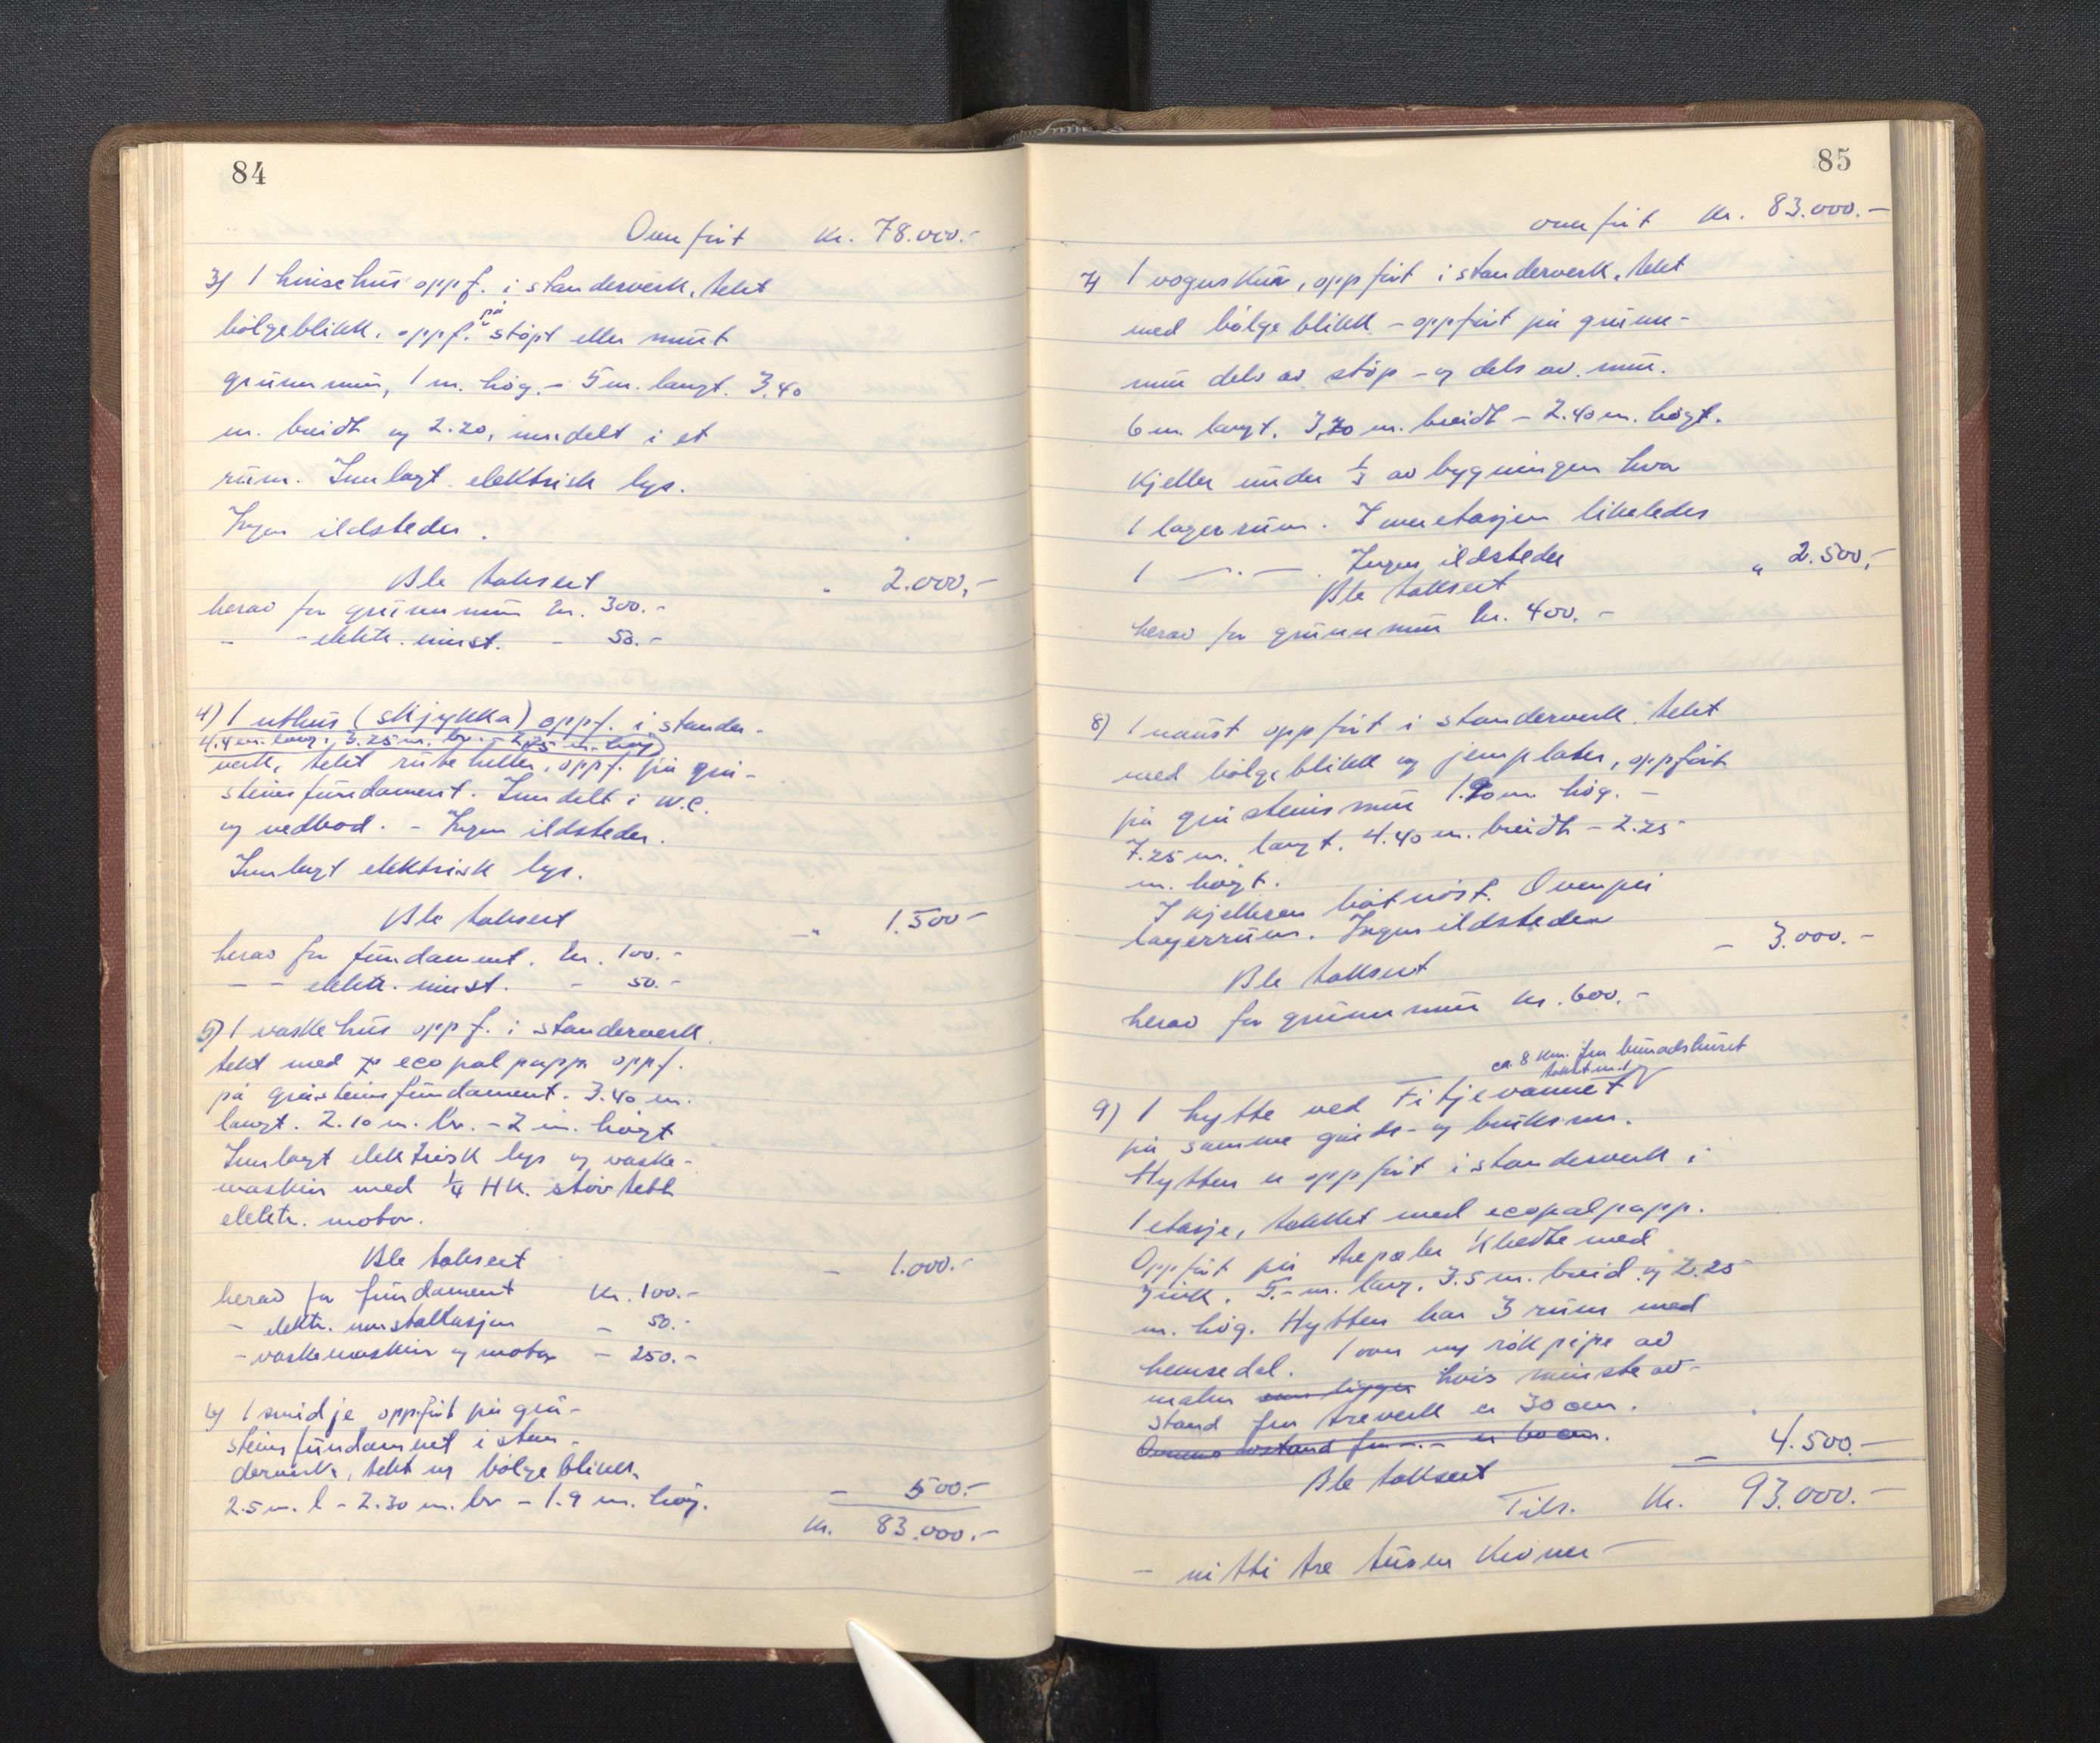 84
Overført Kr. 78.000.-
3) 1 hønsehus oppf. i standerverk, tekt
bølgeblikk, oppf. på støpt eller murt
grunnmur, 1 m. høg. - 5 m. langt. 3.40
m. breidt og 2.20, inndelt i et
rum. Innlagt elektrisk lys.
Ingen ildsteder.
Ble taksert " 2.000,-
herav for grunnmur kr. 300.-
- - elektr. innst. - 50.-
4) 1 uthus (skjykka) oppf. i stander-
4.4 m. lang, 3.25 m. br. - 2.25 m. høg
verk, tekt ruteheller, oppf. på grå-
steinsfundament. Inndelt i W.C.
og vedbod. - Ingen ildsteder.
Innlagt elektrisk lys.
Ble taksert -"- 1.500-
herav for fundament. kr. 100.-
- - elektr. innst. - 50.-
5) 1 vaskehus oppf. i standerverk
tekt med ecopalpapp oppf.
på gråsteinsfundament. 3.40 m.
langt. 2.10 m. br. - 2 m. høgt
Innlagt elektrisk lys og vaske-
maskin med 1/4 HK. støvtett
elektr. motor.
Ble taksert - 1.000.-
herav for fundament Kr. 100.-
- elektr. innstallasjon - 50.-
- vaskemaskin og motor - 250.-
6) 1 smidje oppført på grå-
steinsfundament i stan-
derverk, tekt m bølgeblikk.
2.5 m. l - 2.30 m. br - 1.9 m. høg. - 500.-
Kr. 83.000.-
85
overført Kr. 83.000.-
7) 1 vognskur, oppført i standerverk, tekt
med bølgeblikk - oppført på grunn-
mur dels av støp - og dels av mur.
6 m. langt. 3,70 m. breidt - 2.40 m. høgt.
Kjeller under 1/3 av bygningen hvor
1 lagerrum. I overetasjen likeledes
1 -"- . Ingen ildsteder " 2.500,-
Ble taksert
herav for grunnmur kr. 400.-
8) 1 naust oppført i standerverk, tekt
med bølgeblikk og jernplater, oppført
på gråsteinsmur 1.90 m høg. -
7.25 m. langt. 4.40 m. breidt - 2.25
m. høgt.
I kjelleren båtnøst. Ovenpå
lagerrum. Ingen ildsteder - 3.000.-
Ble taksert
herav for grunnmur kr. 600.-
ca. 8 km. fra bunadshuset
9) 1 hytte ved Fitjevannet
på samme gårds- og bruksnr.
Hytten er oppført i standerverk i
1 etasje, takket med ecopalpapp.
Oppført på trepæler kledte med
zink. 5.- m. lang, 3.5 m. breid og 2.25
m. høg. Hytten har 3 rum med
hemsedal. 1 ovn og rökpipe av
malm som ligger hvis minste av-
stand fra treverk er 30 cm.
Ovnens avstand fra -.- er 60 cm.
Ble taksert - 4.500.-
Tils. Kr. 93.000.-
- nitti tre tusen kroner -